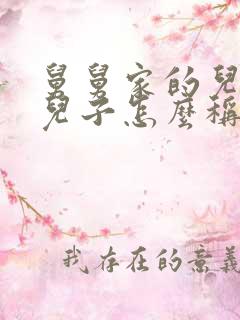 舅舅家的兒
兒子怎麼稱
我存在的意義